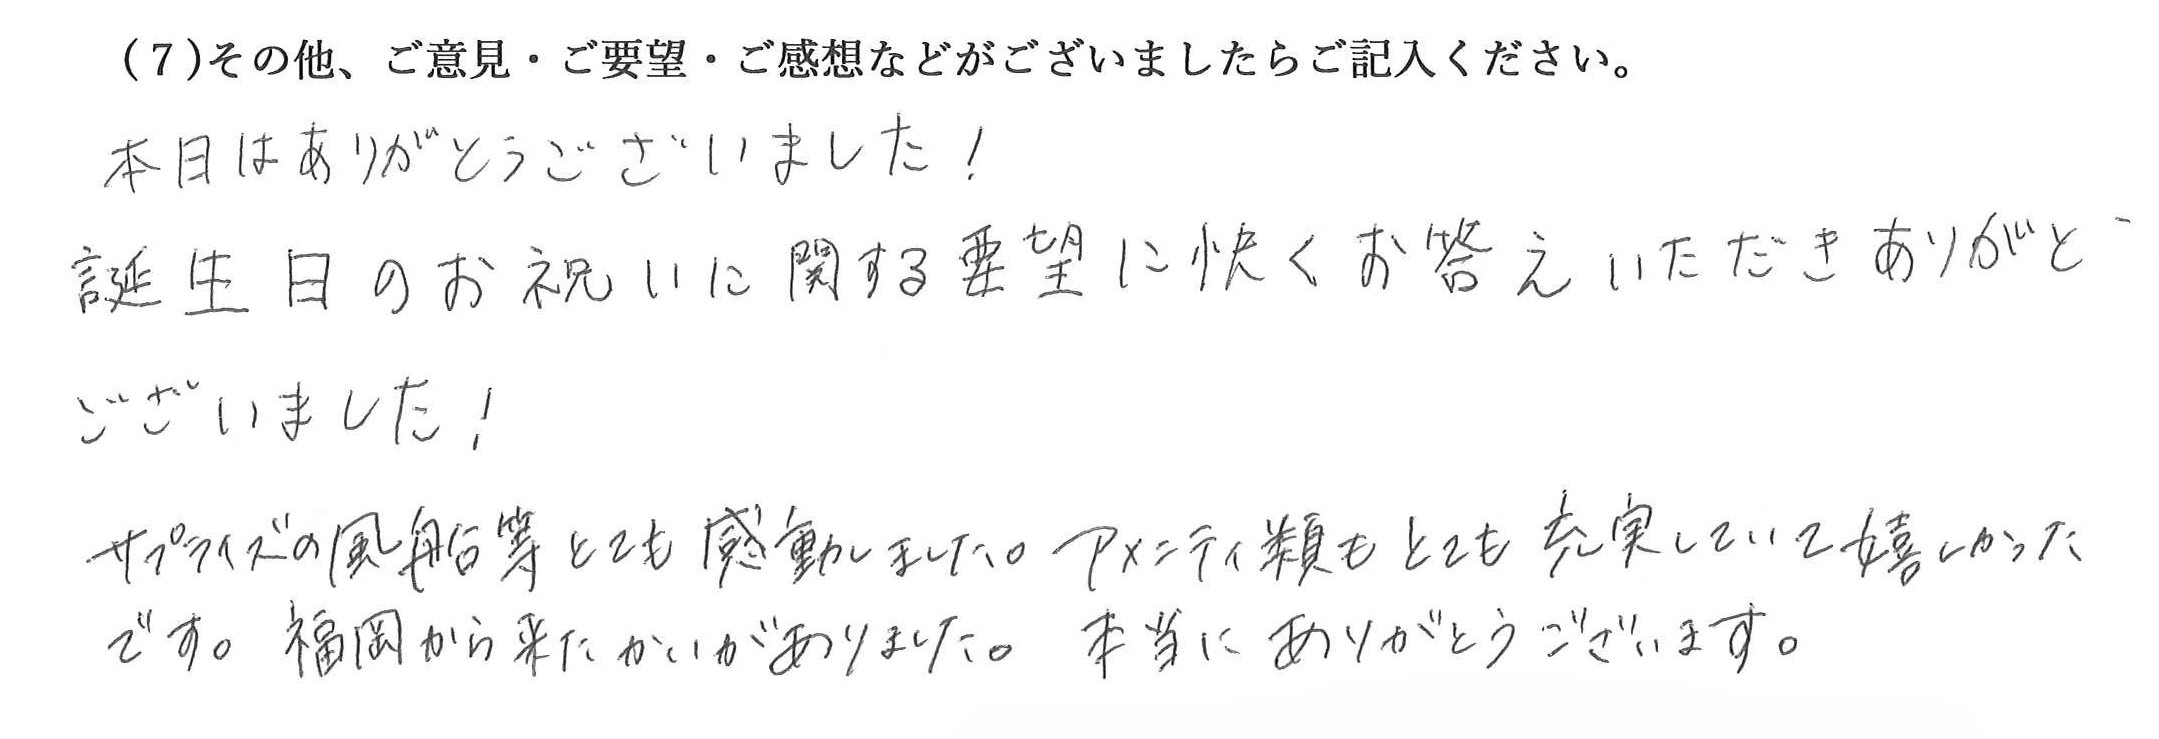 (7)その他、ご意見・ご要望・ご感想などがございましたらご記入ください。
本日はありがとうございました!
誕生日のお祝いに関する要望に快くお答えいただきありがとう
ございました!
サプライズの風船等とても感動しました。アメニティ類もとても充実していて嬉しかった
です。福岡から来たかいがありました。本当にありがとうございます。